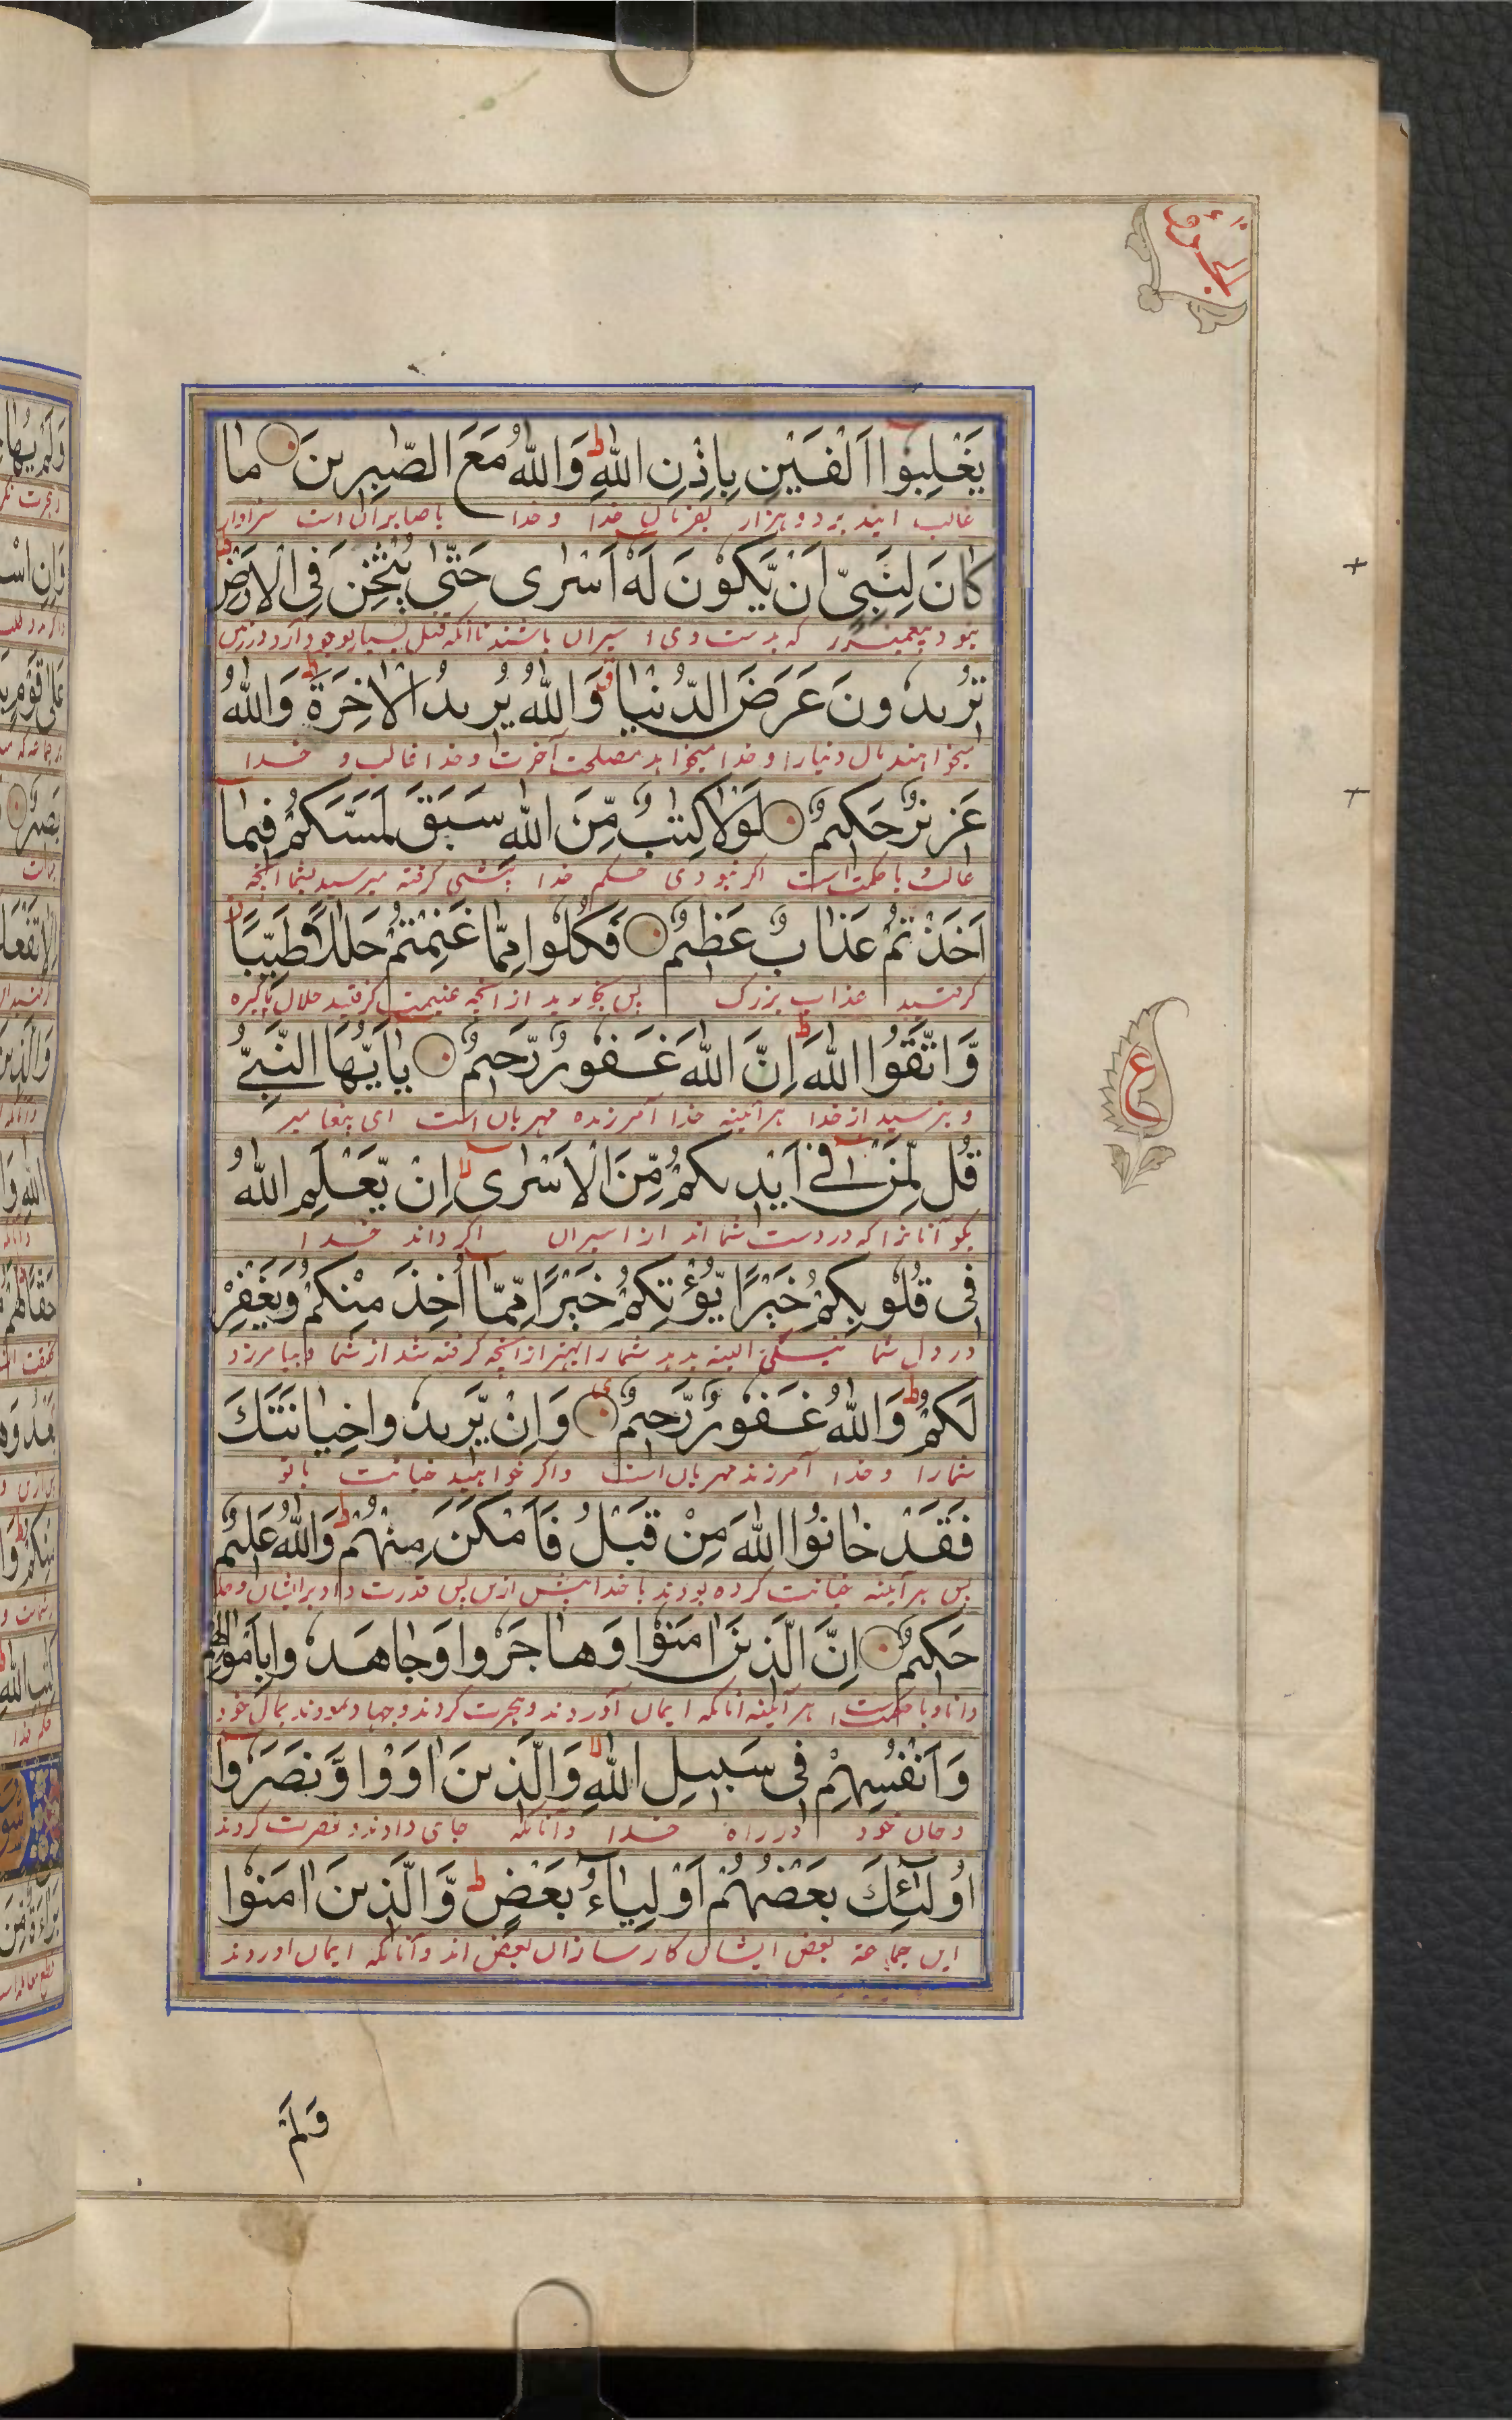 يَغْلِبُوا اَلْفَيْنِ بِاِذْنِ اللّٰهِ ؕ وَاللّٰهُ مَعَ الصّٰبِرِينَ مَا
غالب ایند بر دو هزار بفرمان خدا و خدا با صابران است سزاوار
كَانَ لِنَبِيٍّ اَنْ يَّكُوْنَ لَهٗ اَسْرٰى حَتّٰى يُثْخِنَ فِى الْاَرْضِ ؕ
نبود پیغمبر را که بدست وی اسیران باشند تا آنکه قتل بسیار بوجود آرد در زمین
تُرِيدُونَ عَرَضَ الدُّنْيَا ۖق وَاللّٰهُ يُرِيدُ الْاٰخِرَةَ ؕ وَاللّٰهُ
میخواهند مال دنیا را و خدا میخواهد مصلحت آخرت و خدا غالب و خدا
عَزِيزٌ حَكِيمٌ لَوْلَا كِتٰبٌ مِّنَ اللّٰهِ سَبَقَ لَمَسَّكُمْ فِيمَآ
غالب با حکمت است اگر نبودی حکم خدا پیشی گرفته میرسید بشما آنچه
اَخَذْتُمْ عَذَابٌ عَظِيمٌ فَكُلُوا مِمَّا غَنِمْتُمْ حَلٰلًا طَيِّبًا
گرفتید عذاب بزرگ پس بخورید از آنچه غنیمت گرفتید حلال پاکیزه
وَّاتَّقُوا اللّٰهَ ؕ اِنَّ اللّٰهَ غَفُورٌ رَّحِيمٌ يٰٓاَيُّهَا النَّبِيُّ
و بترسید از خدا هر آئینه خدا آمرزنده مهربان است ای پیغامبر
قُل لِّمَنْ فِىٓ اَيْدِيكُمْ مِّنَ الْاَسْرٰٓى ۙ اِنْ يَّعْلَمِ اللّٰهُ
بگو آنانرا که در دست شما اند از اسیران اگر داند خدا
فِى قُلُوبِكُمْ خَيْرًا يُّؤْتِكُمْ خَيْرًا مِّمَّآ اُخِذَ مِنْكُمْ وَيَغْفِرْ
در دل شما نیکی البته بدهد شما را بهتر از آنچه گرفته شد از شما و بیامرزد
لَكُمْ ؕ وَاللّٰهُ غَفُورٌ رَّحِيمٌ وَاِنْ يُّرِيدُوا خِيَانَتَكَ
شما را و خدا آمرزند مهربان است و اگر خواهند خیانت با تو
فَقَدْ خَانُوا اللّٰهَ مِنْ قَبْلُ فَاَمْكَنَ مِنْهُمْ ؕ وَاللّٰهُ عَلِيمٌ
پس هر آئینه خیانت کرده بودند با خدا پیش ازین پس قدرت داد بر ایشان و خدا
حَكِيمٌ اِنَّ الَّذِينَ اٰمَنُوْا وَهَاجَرُوا وَجَاهَدُوا بِاَمْوَالِهِمْ
دانا و با حکمت است هر آئینه آنانکه ایمان آوردند و هجرت کردند و جهاد نمودند بمال خود
وَاَنْفُسِهِمْ فِى سَبِيلِ اللّٰهِ ۙ وَالَّذِينَ اٰوَوْا وَّنَصَرُوْٓا
و جان خود در راه خدا و آنانکه جای دادند و نصرت کردند
اُولٰٓئِكَ بَعْضُهُمْ اَوْلِيَآءُ بَعْضٍ ؕ وَّالَّذِينَ اٰمَنُوْا
این جماعة بعض ایشان کارسازان بعض اند و آنانکه ایمان اوردند
ع
وَلَمْ